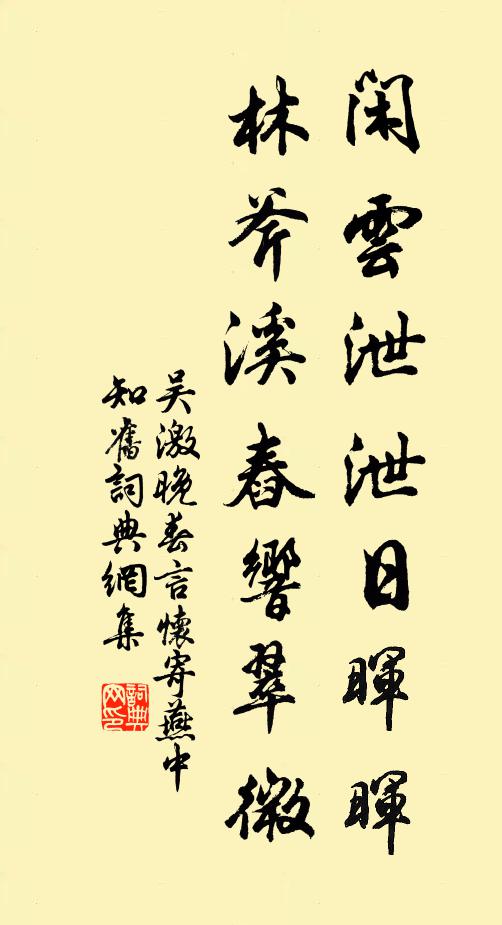 閑雲泄泄日暉暉
林斧溪舂響翠微
吴激晚春言懷寄燕中
知舊詞典網集
詞典网印